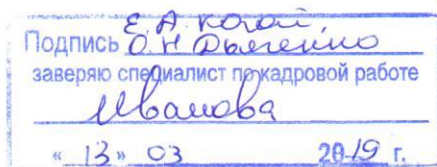 Е. А. Когай,
Подпись О. Н. Дьяченко
заверяю специалист по кадровой работе
Иванова
« 13 » 03 2019 г.